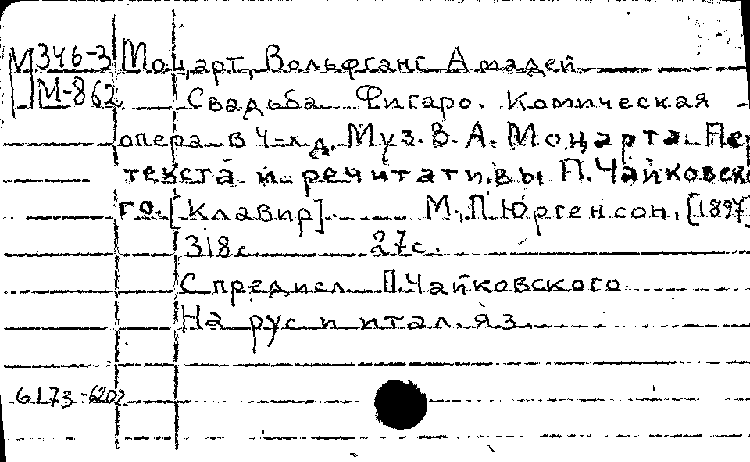 М346-3 Моцарт, Вольфганг Амадей
М-862 Свадьба Фигаро. Комическая
опера в 4-х д. Муз. В. А. Моцарта. Пер
текста и речитативы П. Чайковско
го. [Клавир] М. П. Юргенсон, [1897]
318с 27с.
С предисл. П. Чайковского
На рус и итал. яз.
6173-6202